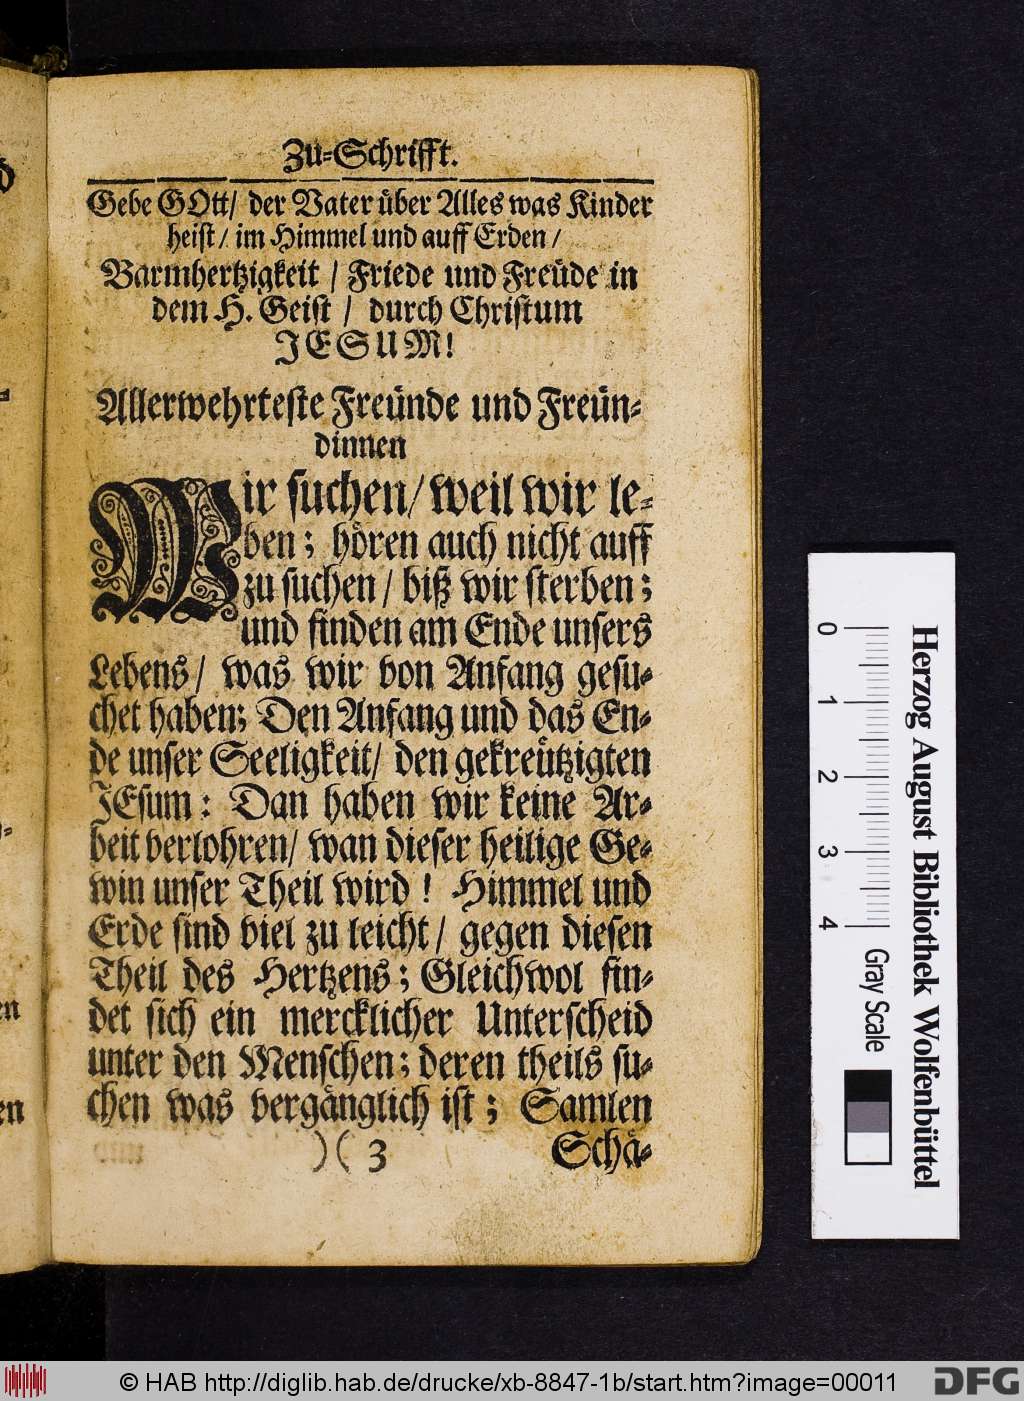 Zu=Schrifft.
Gebe GOtt/ der Vater über Alles was Kinder
heist/ im Himmel und auff Erden/
Barmhertzigkeit / Friede und Freüde in
dem H. Geist / durch Christum
JESUM!
Allerwehrteste Freünde und Freün=
dinnen
Wir suchen/ weil wir le=
ben; hören auch nicht auff
zu suchen / biß wir sterben;
und finden am Ende unsers
Lebens/ was wir von Anfang gesu=
chet haben; Den Anfang und das En=
de unser Seeligkeit/ den gekreützigten
JEsum: Dan haben wir keine Ar=
beit verlohren/ wan dieser heilige Ge=
win unser Theil wird! Himmel und
Erde sind viel zu leicht/ gegen diesen
Theil des Hertzens; Gleichwol fin=
det sich ein mercklicher Unterscheid
unter den Menschen; deren theils su=
chen was vergänglich ist; Samlen
)( 3 Schä=
0 1 2 3 4
Gray Scale
Herzog August Bibliothek Wolfenbüttel
© HAB http://diglib.hab.de/drucke/xb-8847-1b/start.htm?image=00011
DFG